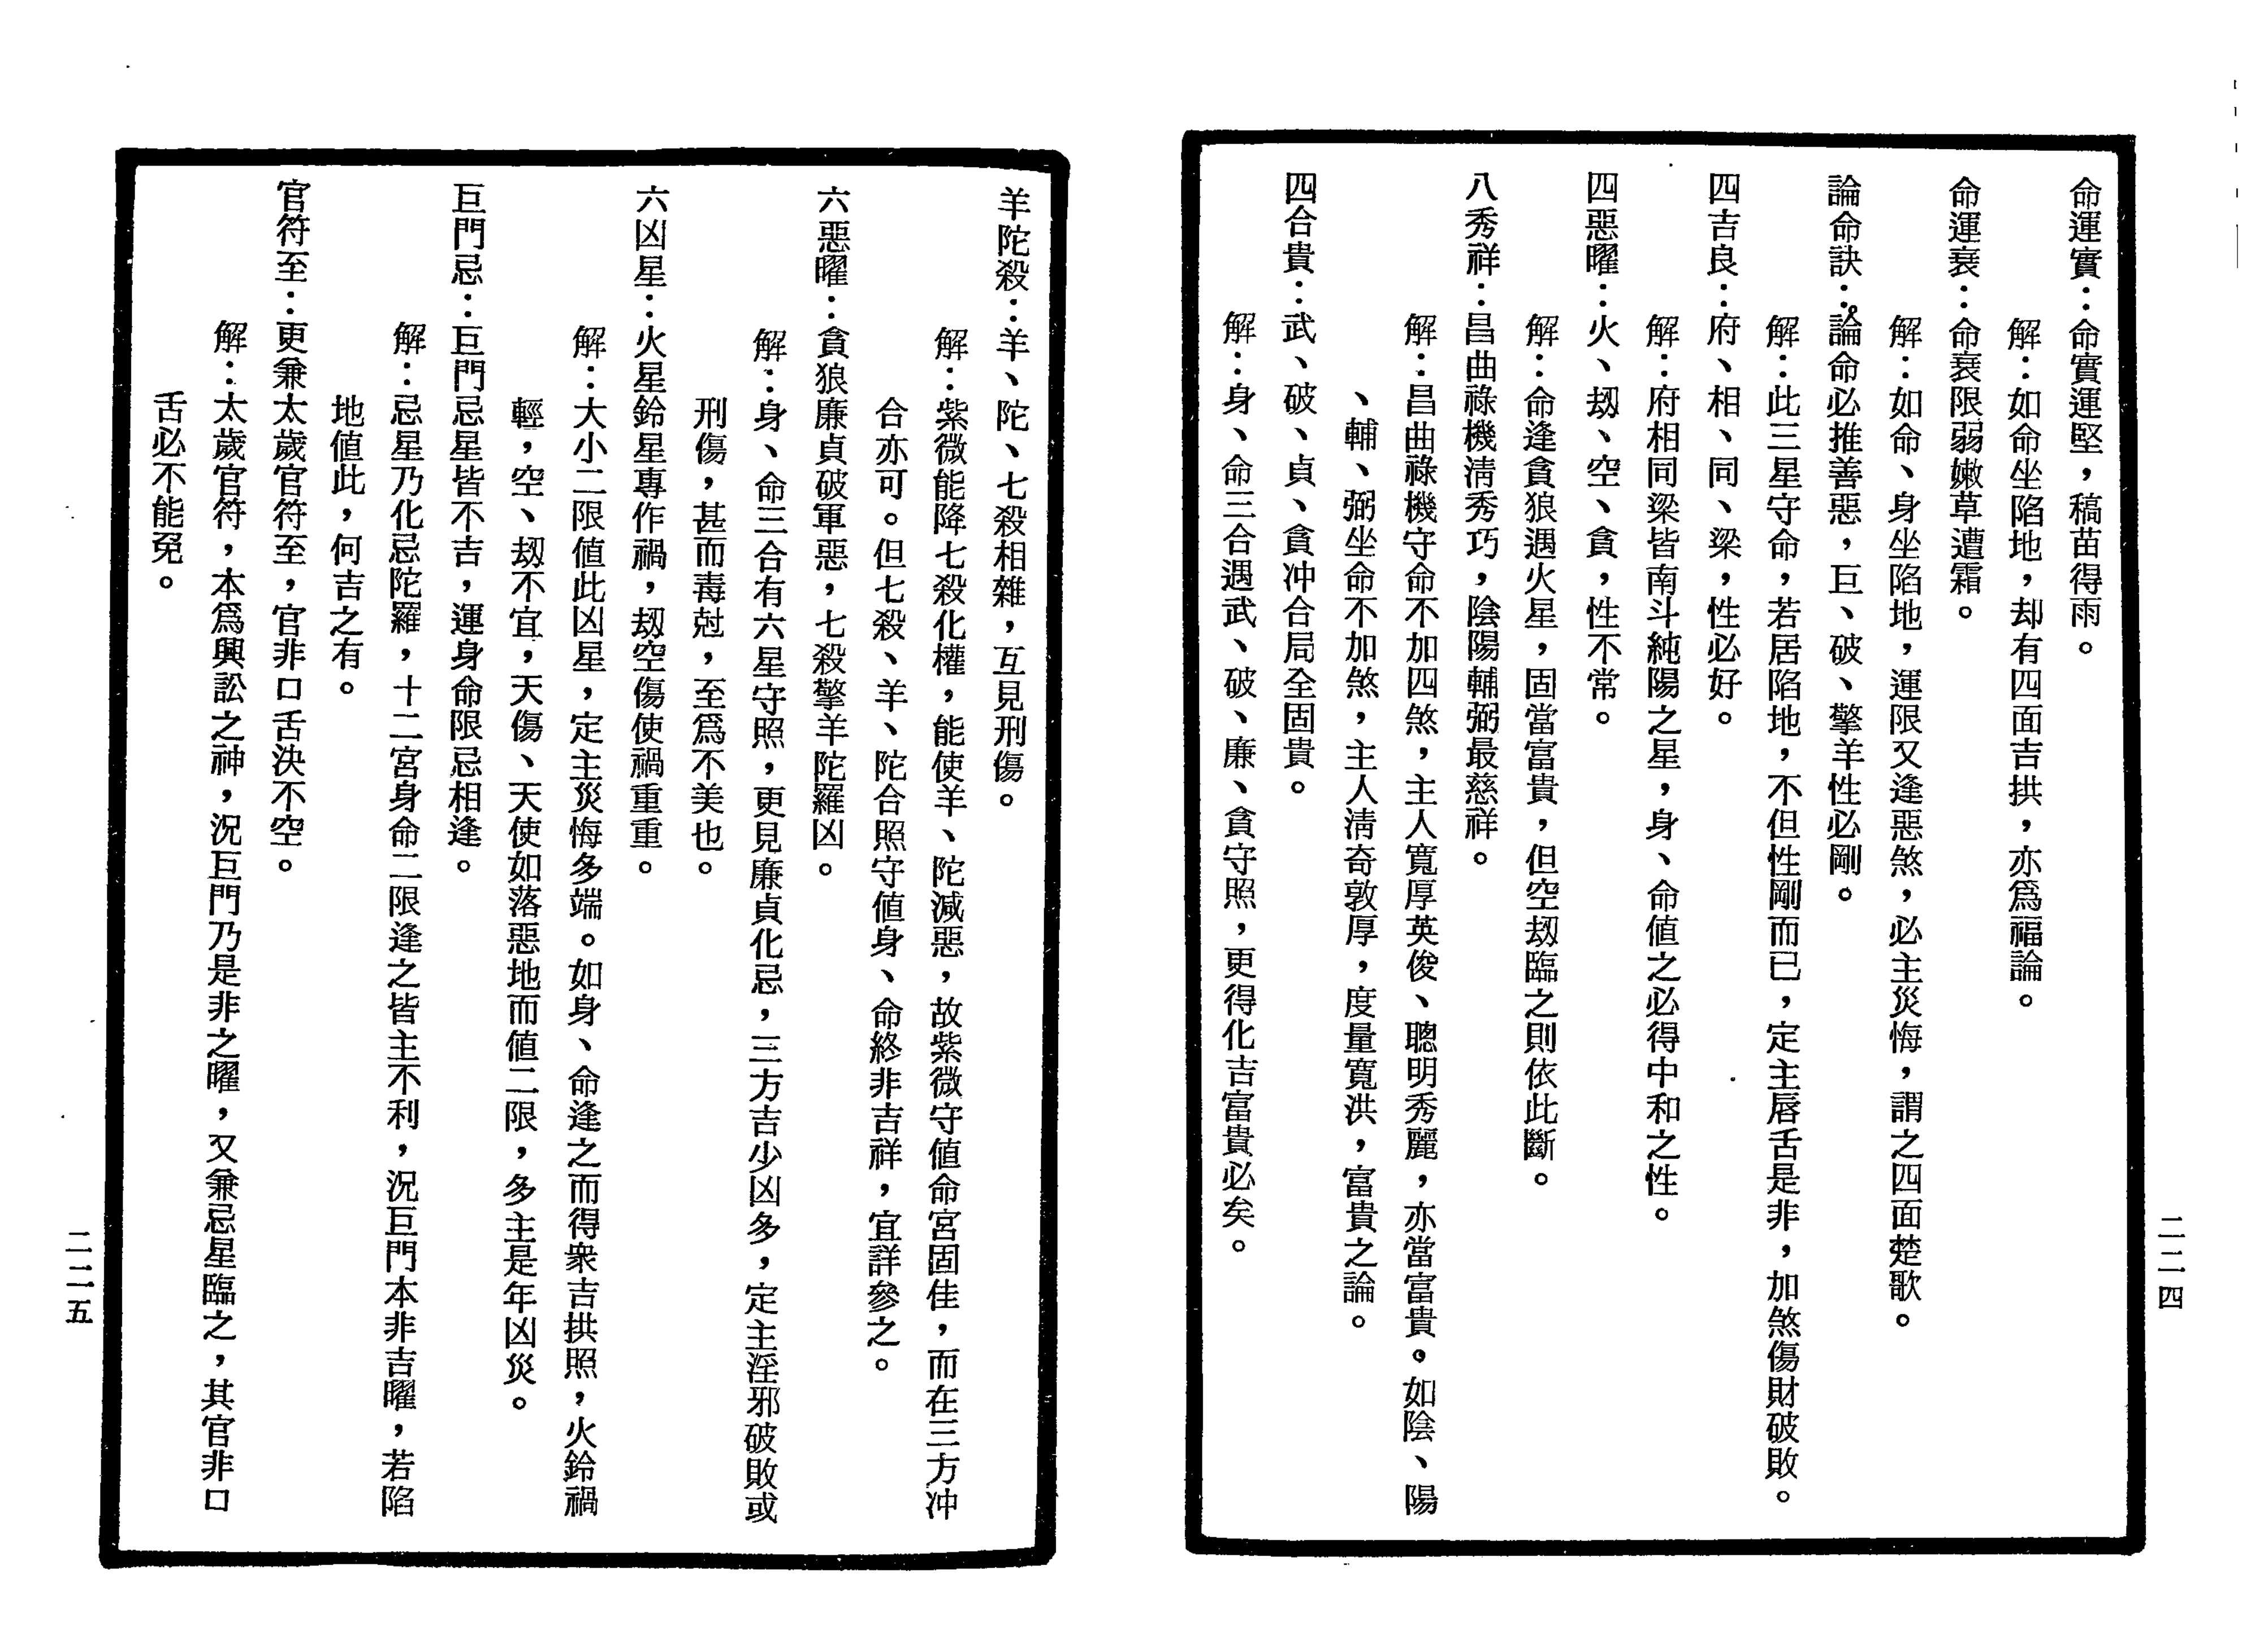 命運實：命實運堅，稿苗得雨。
解：如命坐陷地，却有四面吉拱，亦爲福論。
命運衰：命衰限弱嫩草遭霜。
解：如命、身坐陷地，運限又逢惡煞，必主災悔，謂之四面楚歌。
論命訣：論命必推善惡，巨、破、擎羊性必剛。
解：此三星守命，若居陷地，不但性剛而已，定主唇舌是非，加煞傷財破敗。
四吉良：府、相、同、梁，性必好。
解：府相同梁皆南斗純陽之星，身、命值之必得中和之性。
四惡曜：火、刼、空、貪，性不常。
解：命逢貪狼遇火星，固當富貴，但空刼臨之則依此斷。
八秀祥：昌曲祿機淸秀巧，陰陽輔弼最慈祥。
解：昌曲祿機守命不加四煞，主人寬厚英俊、聰明秀麗，亦當富貴。如陰、陽
、輔、弼坐命不加煞，主人淸奇敦厚，度量寬洪，富貴之論。
四合貴：武、破、貞、貪冲合局全固貴。
解：身、命三合遇武、破、廉、貪守照，更得化吉富貴必矣。
二二四
羊陀殺：羊、陀、七殺相雜，互見刑傷。
解：紫微能降七殺化權，能使羊、陀減惡，故紫微守値命宮固佳，而在三方冲
合亦可。但七殺、羊、陀合照守値身、命終非吉祥，宜詳參之。
六惡曜：貪狼廉貞破軍惡，七殺擎羊陀羅凶。
解：身、命三合有六星守照，更見廉貞化忌，三方吉少凶多，定主淫邪破敗或
刑傷，甚而毒尅，至爲不美也。
六凶星：火星鈴星專作禍，刼空傷使禍重重。
解：大小二限値此凶星，定主災悔多端。如身、命逢之而得衆吉拱照，火鈴禍
輕，空、刼不宜，天傷、天使如落惡地而値二限，多主是年凶災。
巨門忌：巨門忌星皆不吉，運身命限忌相逢。
解：忌星乃化忌陀羅，十二宮身命二限逢之皆主不利，況巨門本非吉曜，若陷
地値此，何吉之有。
官符至：更兼太歲官符至，官非口舌決不空。
解：太歲官符，本爲興訟之神，況巨門乃是非之曜，又兼忌星臨之，其官非口
舌必不能冤。
二二五